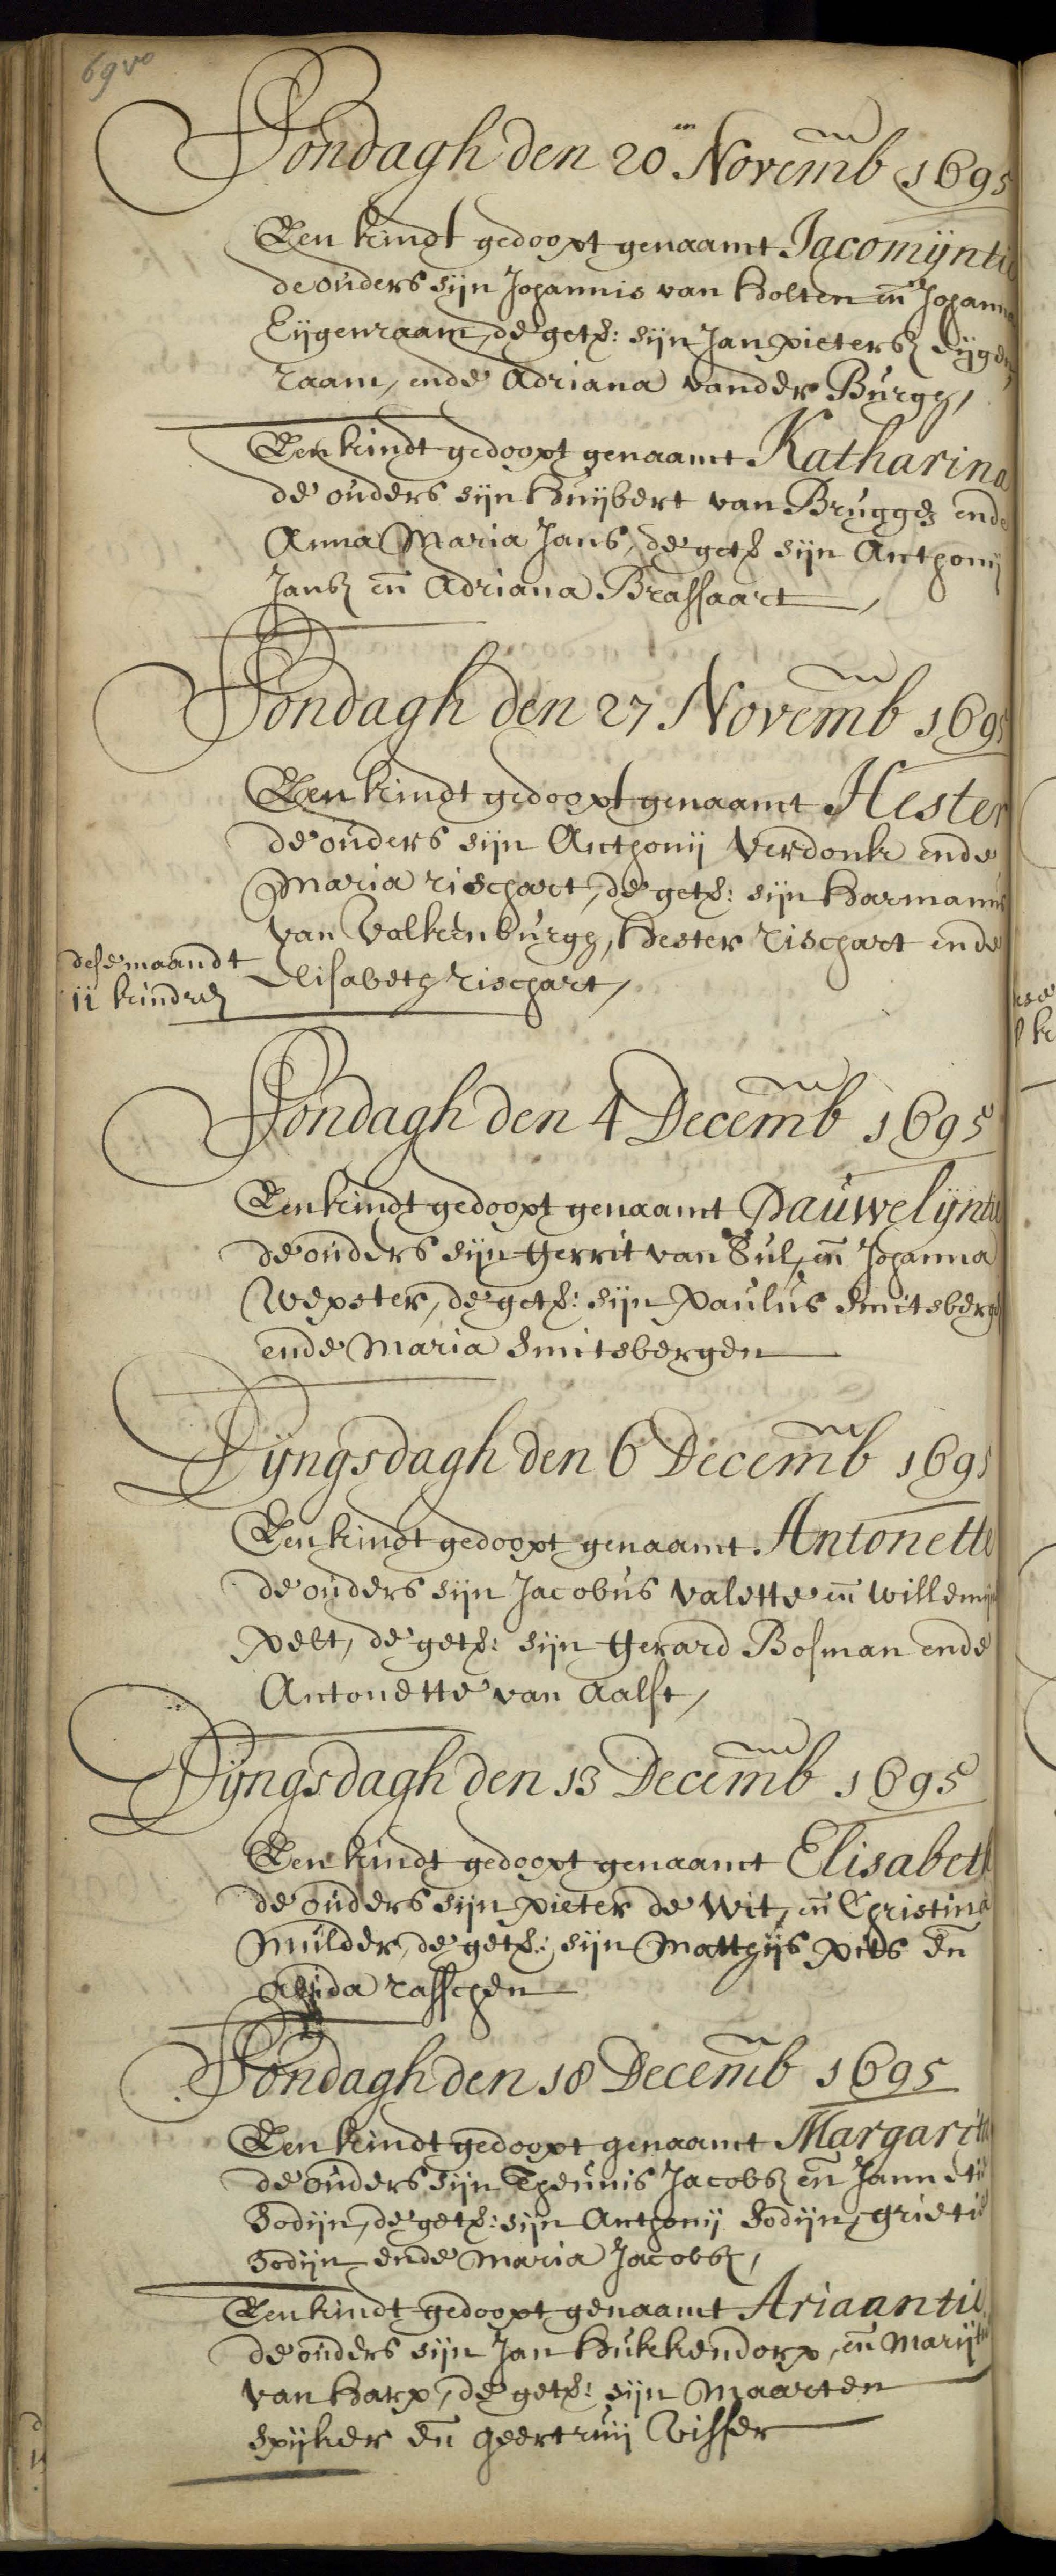 69vo
Sondagh den 20en Novemb 1695
Een kindt gedoopt genaamt Jacomijntie
de ouders sijn Johannis van Holten en Johanna
Eijgenraam, de get: sijn Jan pieters Eijgen
raam, ende Adriana vander Burgh,
Een kindt gedoopt genaamt Katharina
de ouders sijn Huijbert van Brugge ende
Anna Maria Jans, de get sijn Anthonij
Jansz en Adriana Brassaart,
Sondagh den 27 Novemb 1695
Een kindt gedoopt genaamt Hester
de ouders sijn Anthonij Verdonk ende
Maria rischart, de get: sijn Harmanus
van Valkenburgh, Hester rischart ende
Elisabeth rischart,
dese maandt
11 kindren
Sondagh den 4 Decemb 1695
Een kindt gedoopt genaamt Pauwelijntie
de ouders sijn Gerrit van Sul, en Johanna
Wepster, de get: sijn Paulus Smitsberge
ende Maria Smitsbergen
Dijngsdagh den 6 Decemb 1695
Een kindt gedoopt genaamt Antonette
de ouders sijn Jacobus Valette en willemijn
pelt, de get: sijn Gerard Bosman ende
Antonette van Aalst,
Dijngsdagh den 13 Decemb 1695
Een kindt gedoopt genaamt Elisabeth
de ouders sijn pieter de Wit, en Christina
Mulder, de get: sijn Matthijs en
Alida rasschen
Sondagh den 18 Decemb 1695
Een kindt gedoopt genaamt Margarita
de ouders sijn Theunis Jacobsz en Jannetie
Sodijn, de get: sijn Anthonij Sodijn, grietie
Sodijn ende Maria Jacobs,
Een kindt gedoopt genaamt Ariaantie
de ouders sijn Jan Hukkendorp, en Marijtie
van Harp, de get: sijn Maarten
Spijker en geertruij Visser